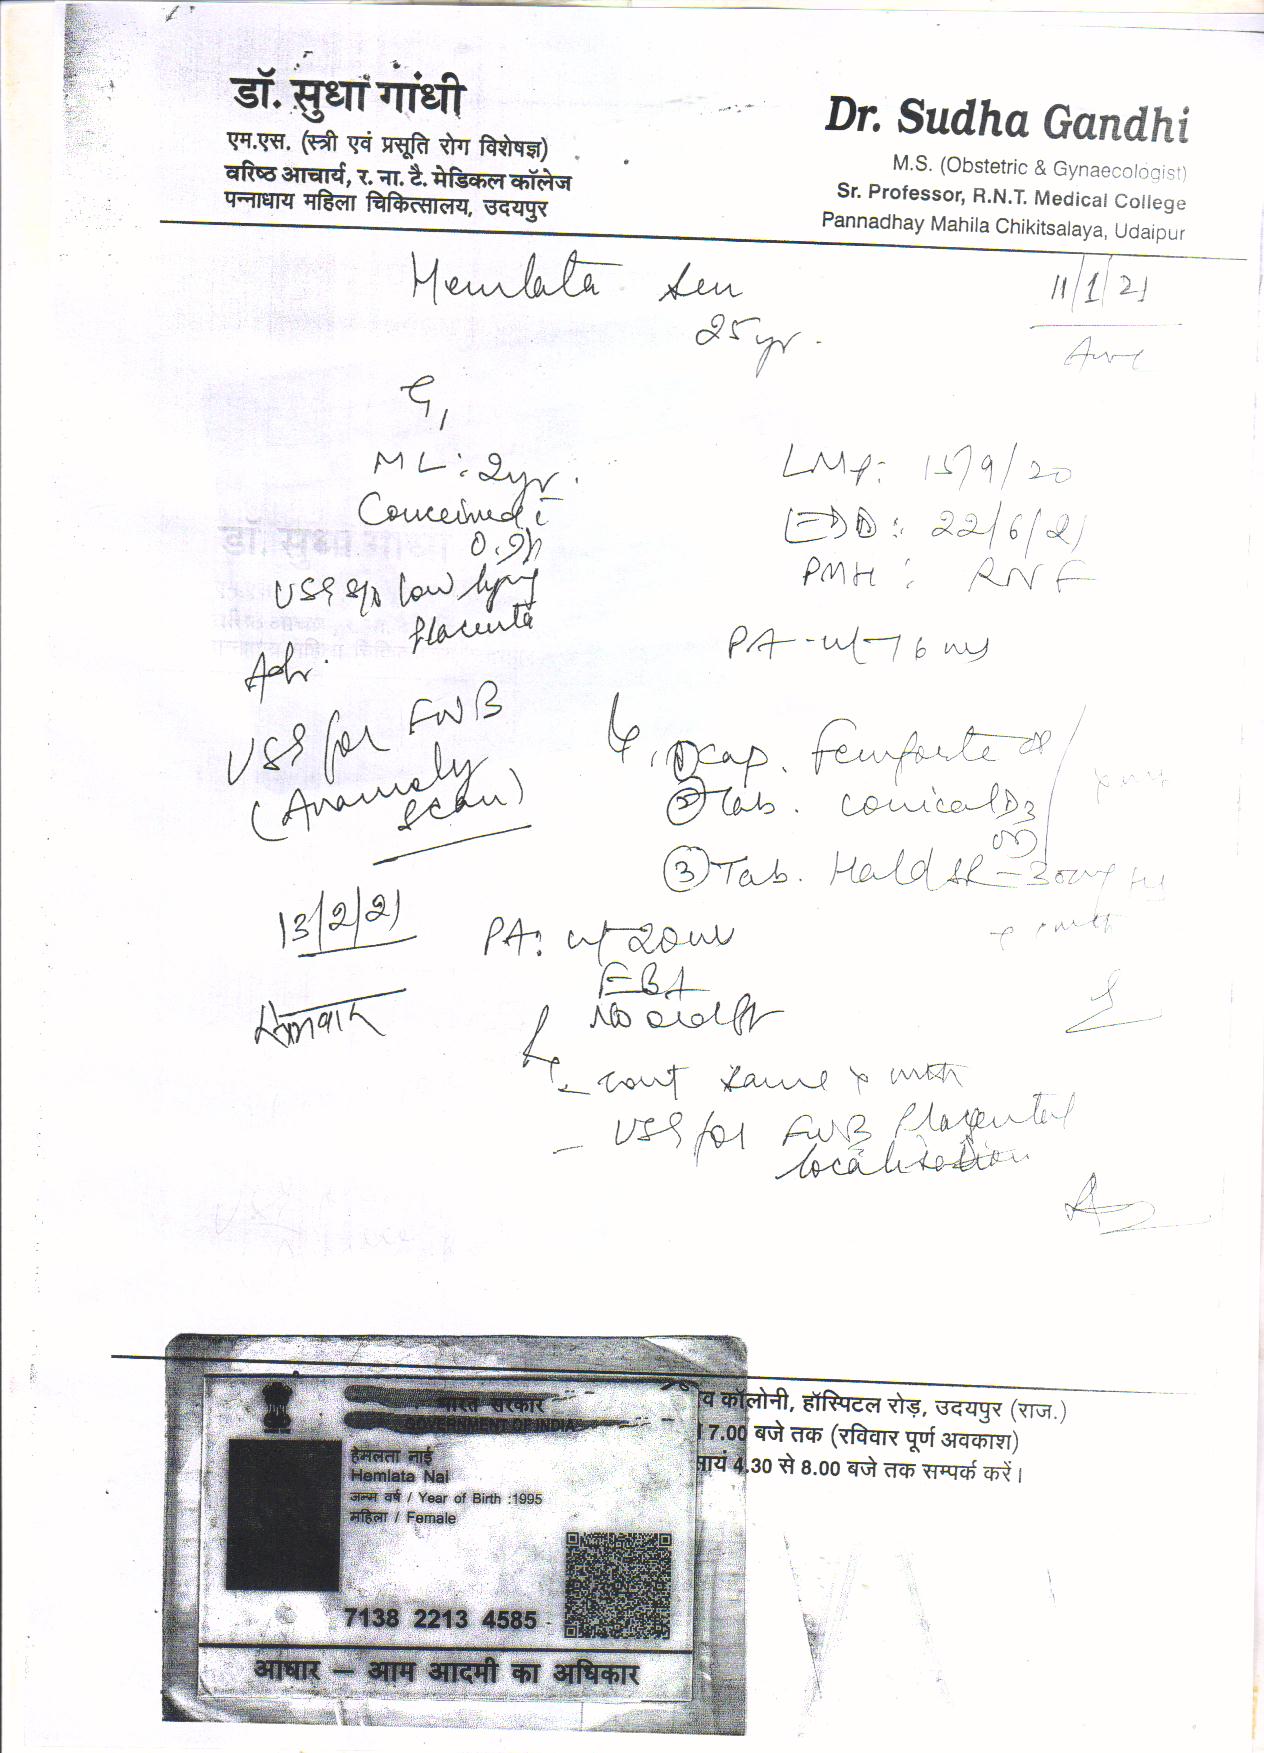 डॉ. सुधा गांधी
एम.एस. (स्त्री एवं प्रसूति रोग विशेषज्ञ)
वरिष्ठ आचार्य, र. ना. टै. मेडिकल कॉलेज
पन्नाधाय महिला चिकित्सालय, उदयपुर
Dr. Sudha Gandhi
M.S. (Obstetric & Gynaecologist)
Sr. Professor, R.N.T. Medical College
Pannadhay Mahila Chikitsalaya, Udaipur
Hemlata Sen
25 yr.
11/1/21
G1
ML: 2yr.
Conceived
USG low lying
placenta
Adv.
USG for FWB
(Anamoly
scan)
LMP: 15/9/20
EDD: 22/6/21
PMH: RNF
PA - 16
1 cap. Femforte
2 Tab. conical D3
3 Tab. Hald SR - 300mg
13/2/21
PA: 20
No
- cont same x mth
- USG for FWB Placental
localisation
व कॉलोनी, हॉस्पिटल रोड़, उदयपुर (राज.)
7.00 बजे तक (रविवार पूर्ण अवकाश)
सायं 4.30 से 8.00 बजे तक सम्पर्क करें।
भारत सरकार
GOVERNMENT OF INDIA
हेमलता नाई
Hemlata Nai
जन्म वर्ष / Year of Birth :1995
महिला / Female
7138 2213 4585
आधार – आम आदमी का अधिकार